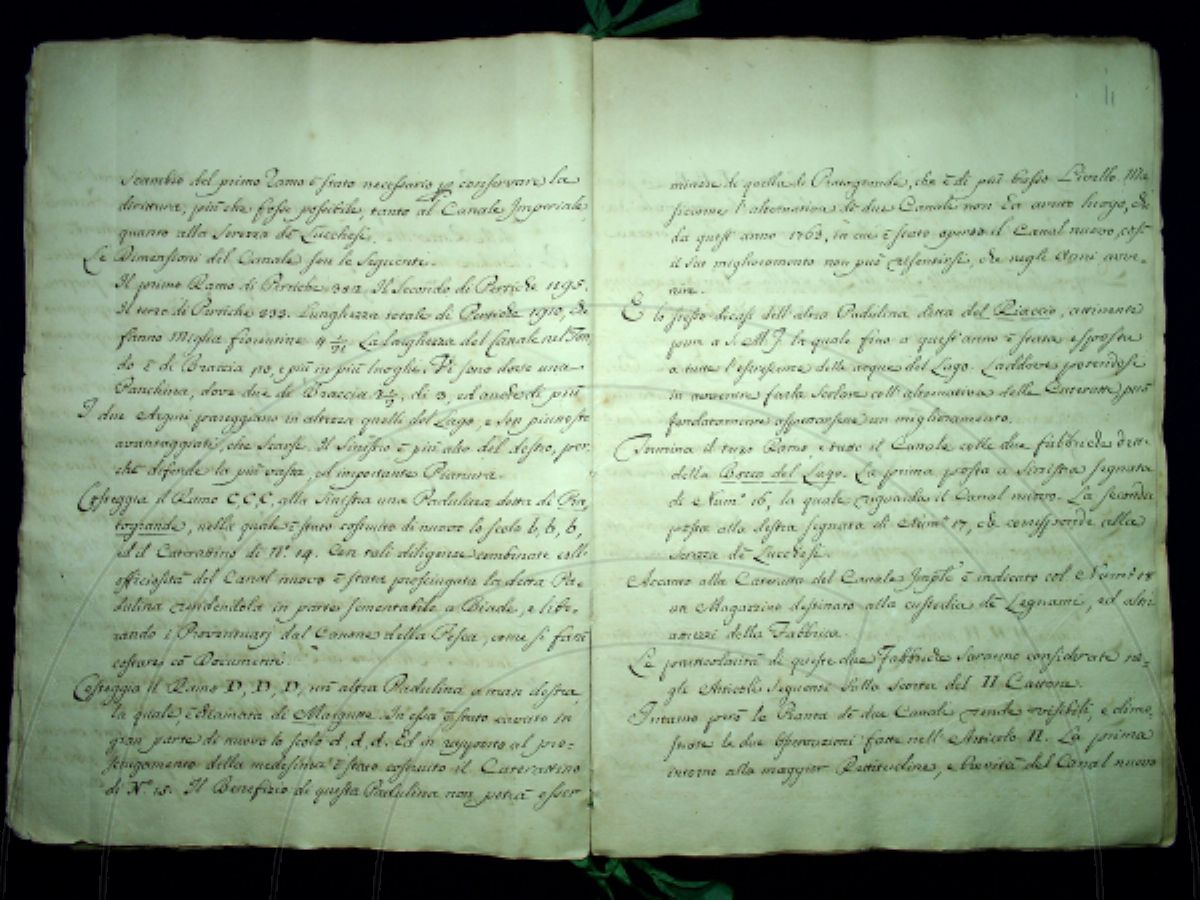 scambio del primo Ramo è stato necessario per conservare la
dirittura, più che fosse possibile, tanto al Canale Imperiale
quanto alla Serezza de Lucchesi.
Le Dimensioni del Canale son le Seguenti.
Il primo Ramo di Pertiche 382. Il Secondo di Pertiche 1295.
Il terzo di Pertiche 233. Lunghezza totale di Pertiche 1910, che
fanno Miglia fiorentine 4 La larghezza del Canale nel Fon
do è di Braccia 10, e più in più luoghi. Vi sono dove una
Panchina, dove due di Braccia 2 1/2, di 3, ed anche di più
I due Argini pareggiano in altezza quelli del Lago, e son piuttosto
avantaggiati, che scarsi. Il Sinistro è più alto del destro, per
chè difende la più vasta, ed importante Pianura.
Costeggia il Ramo C, C, C, alla Sinistra una Padulina detta di Pra
togrande, nella quale è stato costruito di nuovo lo scolo b, b, b,
ed il Caterattino di N.º 14. Con tali diligenze combinate coll'
officiosità del Canal nuovo è stata prosciugata la detta Pa
dulina rendendola in parte sementabile a Biade, e libe-
rando i Provventuarj dal Canone della Pesca, come si farà
costare cõ Documenti.
Costeggia il Ramo D, D, D, un altra Padulina a man destra,
la quale è chiamata di Margutte. In essa è stato cavato in
gran parte di nuovo lo scolo d, d, d. Ed in rapporto al pro-
sciugamento della medesima è stato costruito il Caterattino
di N.º 15. Il Benefizio di questa Padulina non potrà esser
11
minore di quella di Pratogrande, che è di più basso Livello. Ma
siccome l'alternativa de due Canali non ha avuto luogo, che
da quest' anno 1763, in cui è stato aperto il Canal nuovo, così
il suo miglioramento non può risentirsi, che negli Anni avve-
nire.
E lo stesso dicasi dell' altra Padulina detta del Riaccio, attinente
pure a S. M. I. la quale fino a quest' anno è stata esposta
a tutte l'escrescenze delle acque del Lago. Laddove potendosi
in avvenire farla scolare coll' alternativa delle Cateratte, può
fondatamente aspettarsene un miglioramento.
Termina il terzo Ramo, e tutto il Canale colle due fabbriche dette
della Bocca del Lago. La prima posta a Sinistra segnata
di Num.º 16, la quale riguarda il Canal nuovo. La seconda
posta alla destra segnata di Num.º 17, che corrisponde alla
Serezza de Lucchesi.
Accanto alla Cateratta del Canale Imp.le è indicato col Num.º 18
un Magazzino destinato alla custodia de Legnami, ed altri
attrezzi della Fabbrica.
Le particolarità di queste due Fabbriche saranno considerate ne-
gli Articoli seguenti sulla Scorta del II Cartone.
Intanto però la Pianta de due Canali rende visibili, e dimo,
strate le due Operazioni fatte nell' Articolo II. La prima
intorno alla maggior Rettitudine, e brevità del Canal nuovo